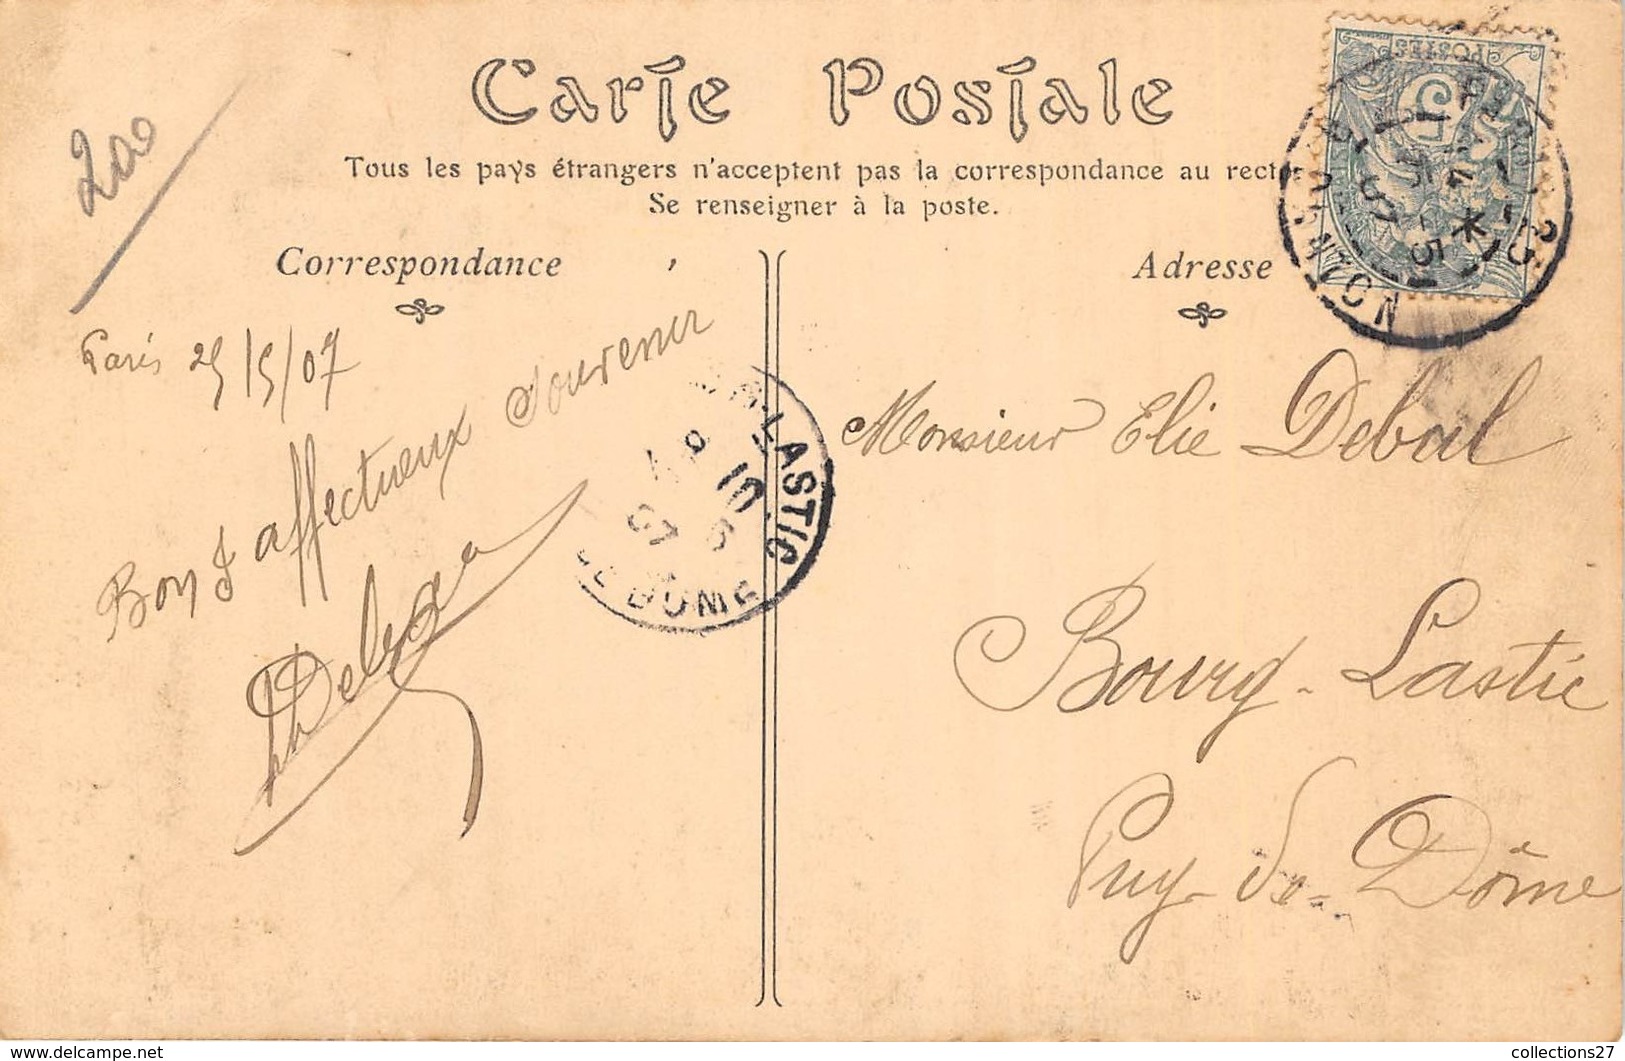 Carte Postale
Tous les pays étrangers n'acceptent pas la correspondance au recto
Se renseigner à la poste.
200
Correspondance
Paris 25/5/07
Bon & affectueux souvenir
Adresse
Monsieur Elie Debal
Bourg-Lastic
Puy-de-Dôme
POSTES
5
LASTIC
DOME
07
collections27